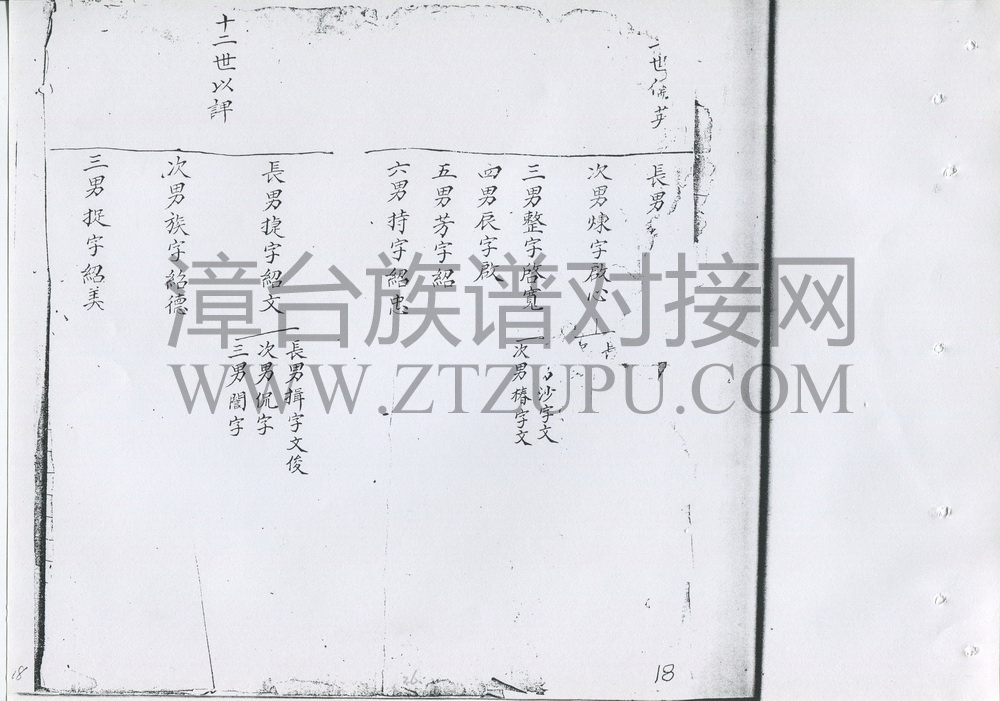 世
英
長男
次男煉字啟心
長
三男整字啓寬
沙字文
次男椿字文
四男辰字啟
五男芳字紹
六男持字紹忠
十二世以諀
長男捷字紹文
長男揖字文俊
次男侃字
三男誾字
次男族字紹德
三男捉字紹美
漳台族谱对接网
WWW.ZTZUPU.COM
18
18
26